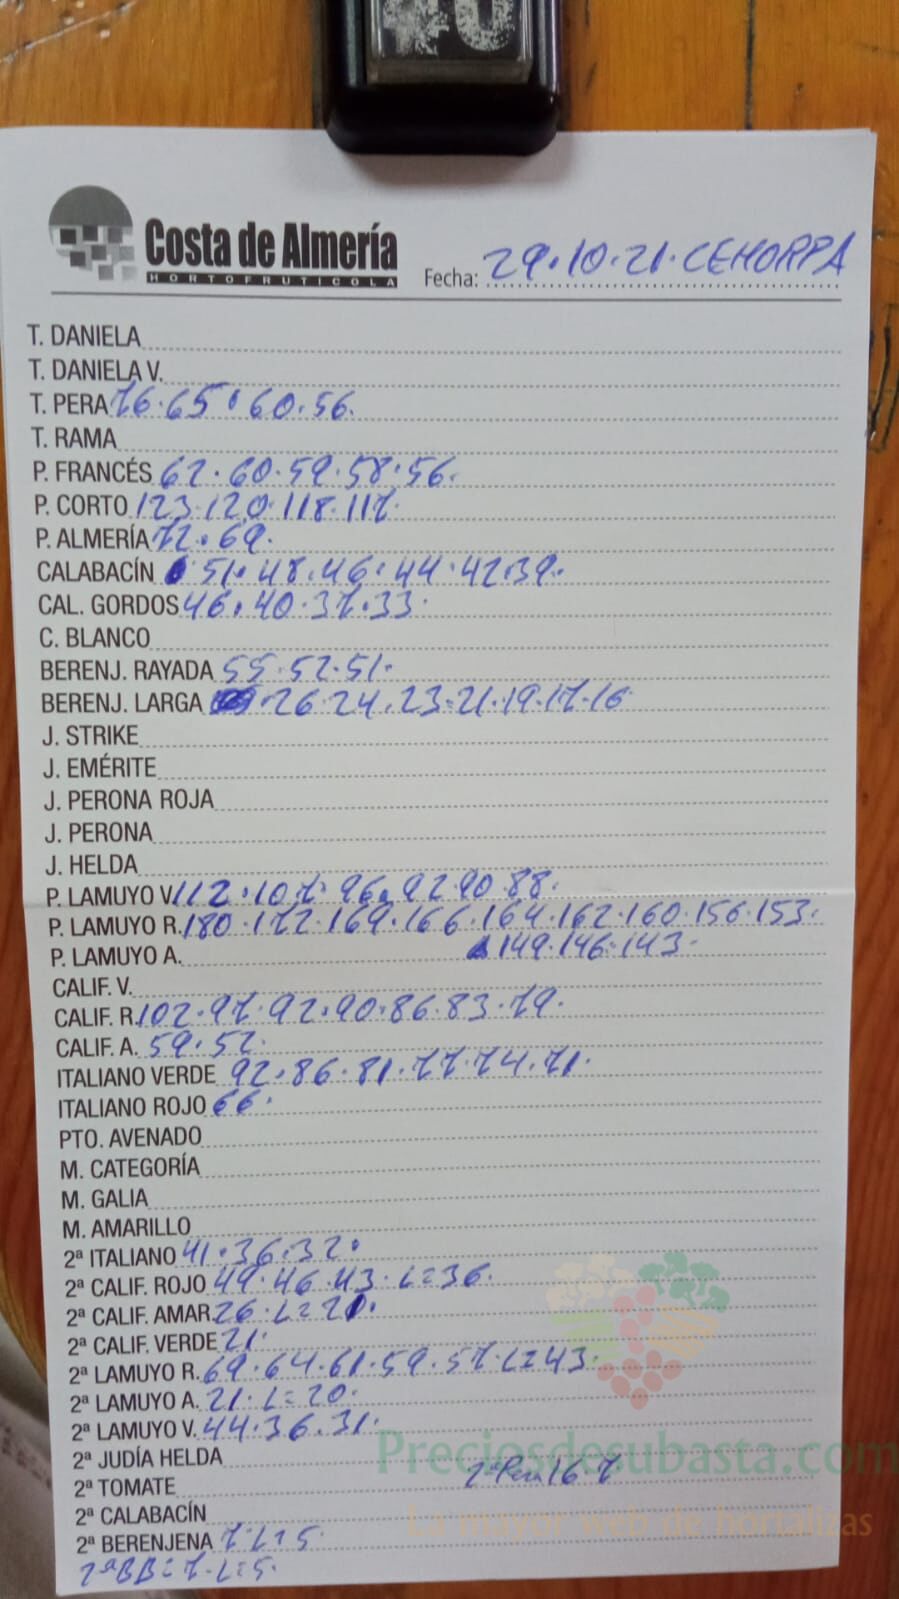 Costa de Almería
HORTOFRUTICOLA
Fecha: 29.10.21.CEHORPA
T. DANIELA
T. DANIELA V.
T. PERA 76.65.60.56.
T. RAMA
P. FRANCÉS 62.60.59.58.56.
P. CORTO 123.120.118.117.
P. ALMERÍA 72.69.
CALABACÍN 51.48.46.44.42.39.
CAL. GORDOS 46.40.37.33.
C. BLANCO
BERENJ. RAYADA 55.52.51.
BERENJ. LARGA .26.24.23.21.19.17.16
J. STRIKE
J. EMÉRITE
J. PERONA ROJA
J. PERONA
J. HELDA
P. LAMUYO V. 112.107.96.92.90.88.
P. LAMUYO R. 180.172.169.166.164.162.160.156.153.
P. LAMUYO A. 149.146.143.
CALIF. V.
CALIF. R. 102.97.92.90.86.83.79.
CALIF. A. 59.52.
ITALIANO VERDE 92.86.81.77.74.71.
ITALIANO ROJO 66.
PTO. AVENADO
M. CATEGORÍA
M. GALIA
M. AMARILLO
2ª ITALIANO 41.36.32.
2ª CALIF. ROJO 49.46.43.L=36.
2ª CALIF. AMAR. 26.L=20.
2ª CALIF. VERDE 21.
2ª LAMUYO R. 69.64.61.59.57.L=43.
2ª LAMUYO A. 21.L=20.
2ª LAMUYO V. 44.36.31.
Preciosdesubasta.com
2ª JUDÍA HELDA
2ª TOMATE 2ª Pera 16.7
2ª CALABACÍN
La mayor web de hortalizas
2ª BERENJENA 7.L=5
2ªBB=7.L=5.